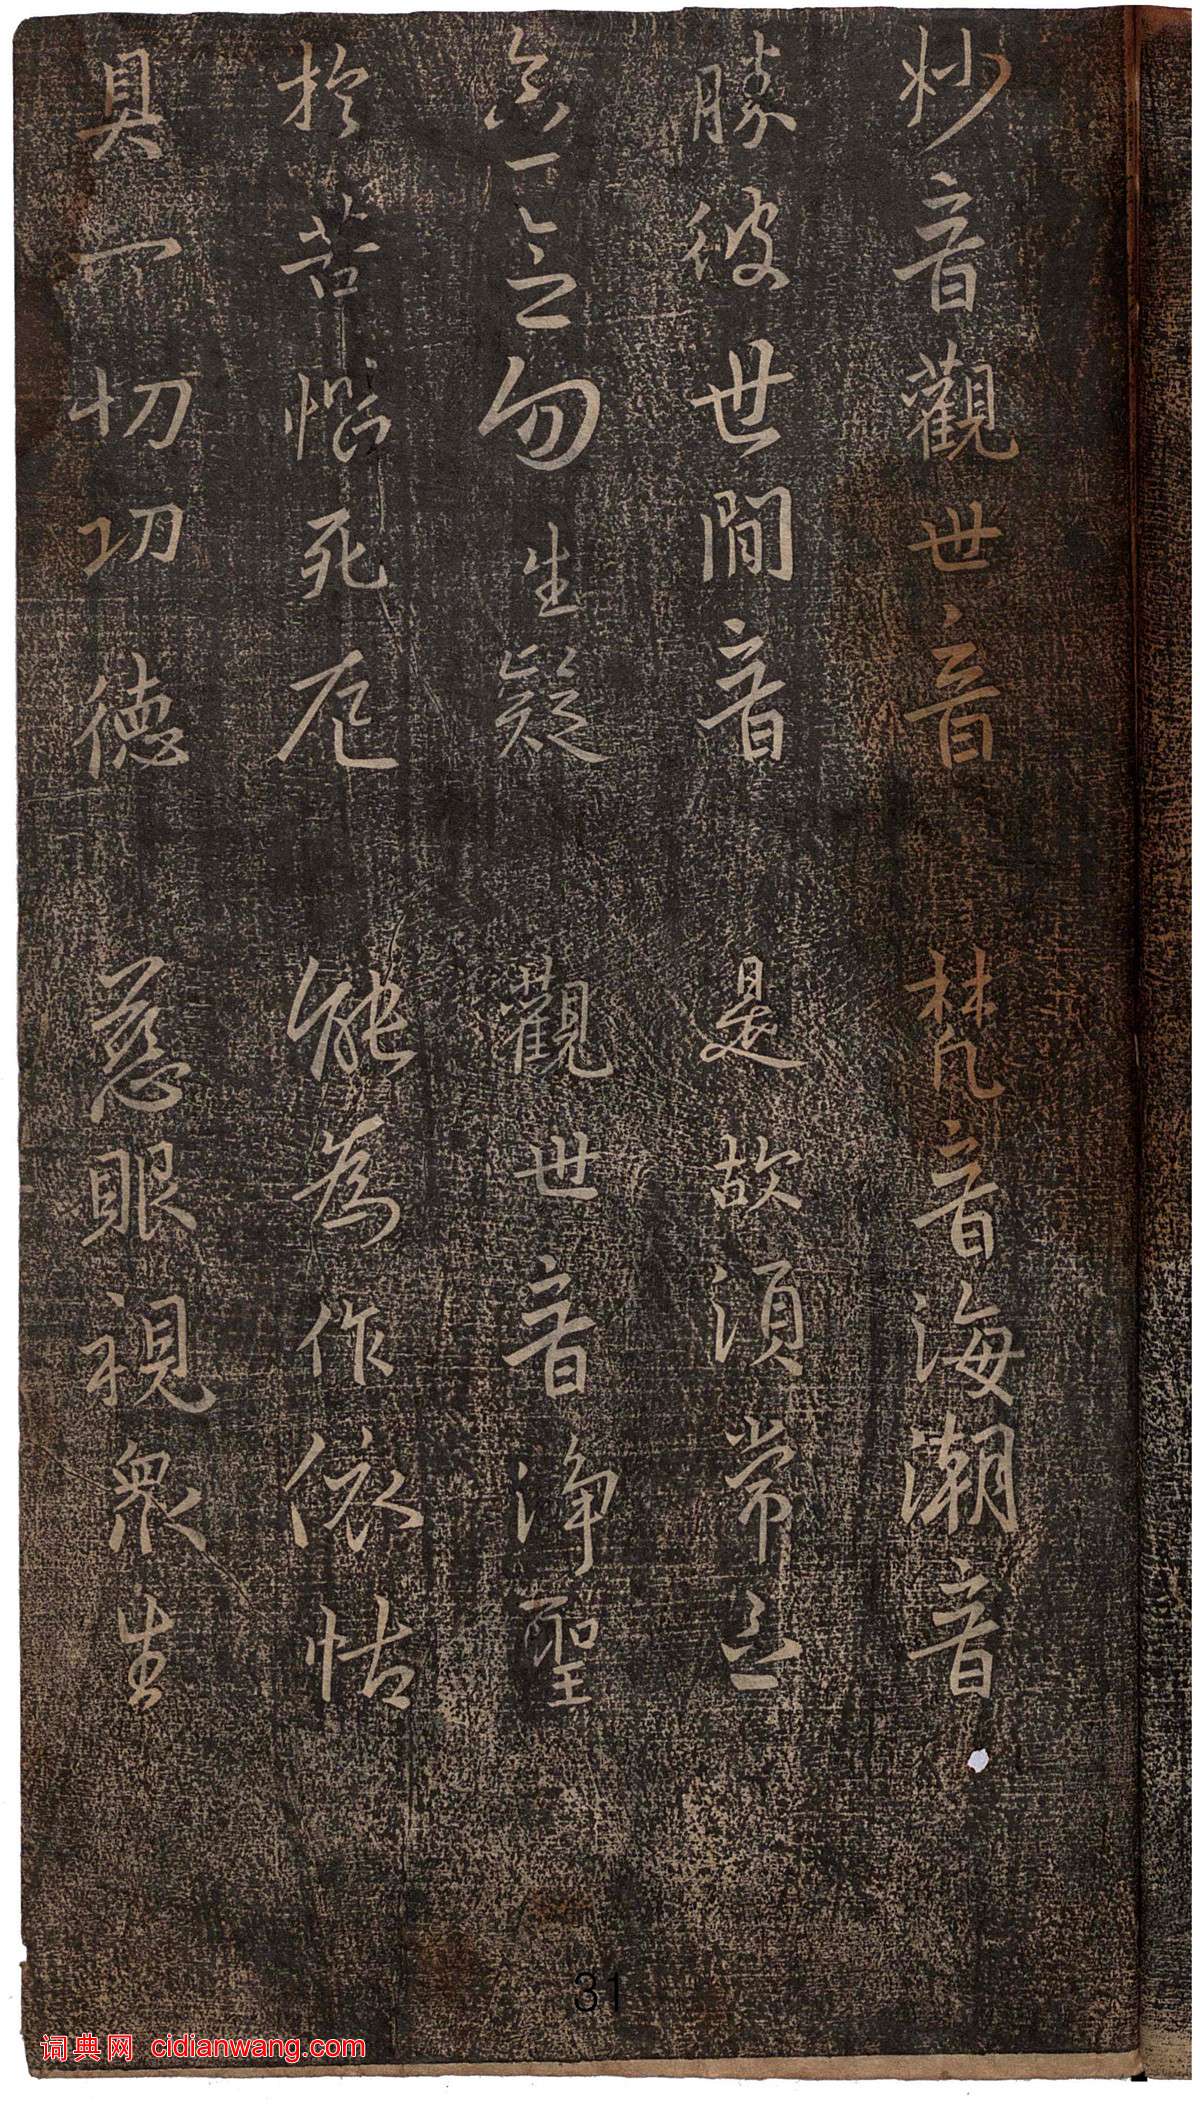 妙音觀世音　梵音海潮音
勝彼世間音　是故須常念
念念勿生疑　觀世音淨聖
於苦惱死厄　能為作依怙
具一切功德　慈眼視衆生
31
词典网 cidianwang.com